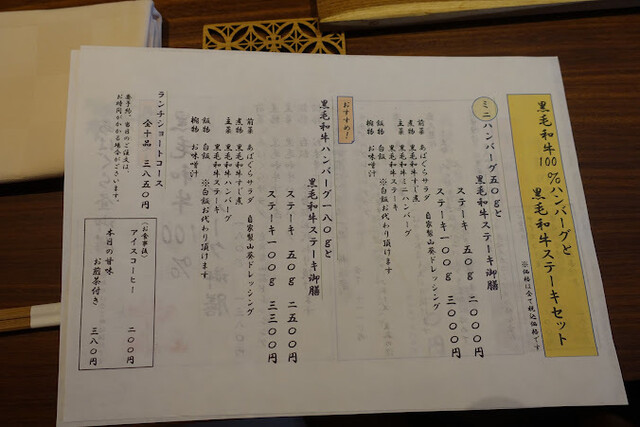 黒毛和牛100%ハンバーグと
黒毛和牛ステーキセット
※価格は全て税込価格です
ミニハンバーグ五〇gと
黒毛和牛ステーキ御膳
ステーキ 五〇g 二〇〇〇円
ステーキ一〇〇g 三〇〇〇円
前菜 あばぐらサラダ 自家製山葵ドレッシング
煮物 黒毛和牛すじ煮
主菜 黒毛和牛ミニハンバーグ
黒毛和牛ステーキ
飯物 白飯 ※白飯お代わり頂けます
椀物 お味噌汁
おすすめ！
黒毛和牛ハンバーグ一八〇gと
黒毛和牛ステーキ御膳
ステーキ 五〇g 二五〇〇円
ステーキ一〇〇g 三三〇〇円
前菜 あばぐらサラダ 自家製山葵ドレッシング
煮物 黒毛和牛すじ煮
主菜 黒毛和牛ハンバーグ
黒毛和牛ステーキ
飯物 白飯 ※白飯お代わり頂けます
椀物 お味噌汁
ランチショートコース
全十品 三八五〇円
要予約、当日のご注文は、
お時間がかかる場合がございます。
(お食事後)
アイスコーヒー 二〇〇円
本日の甘味
お煎茶付き 三八〇円